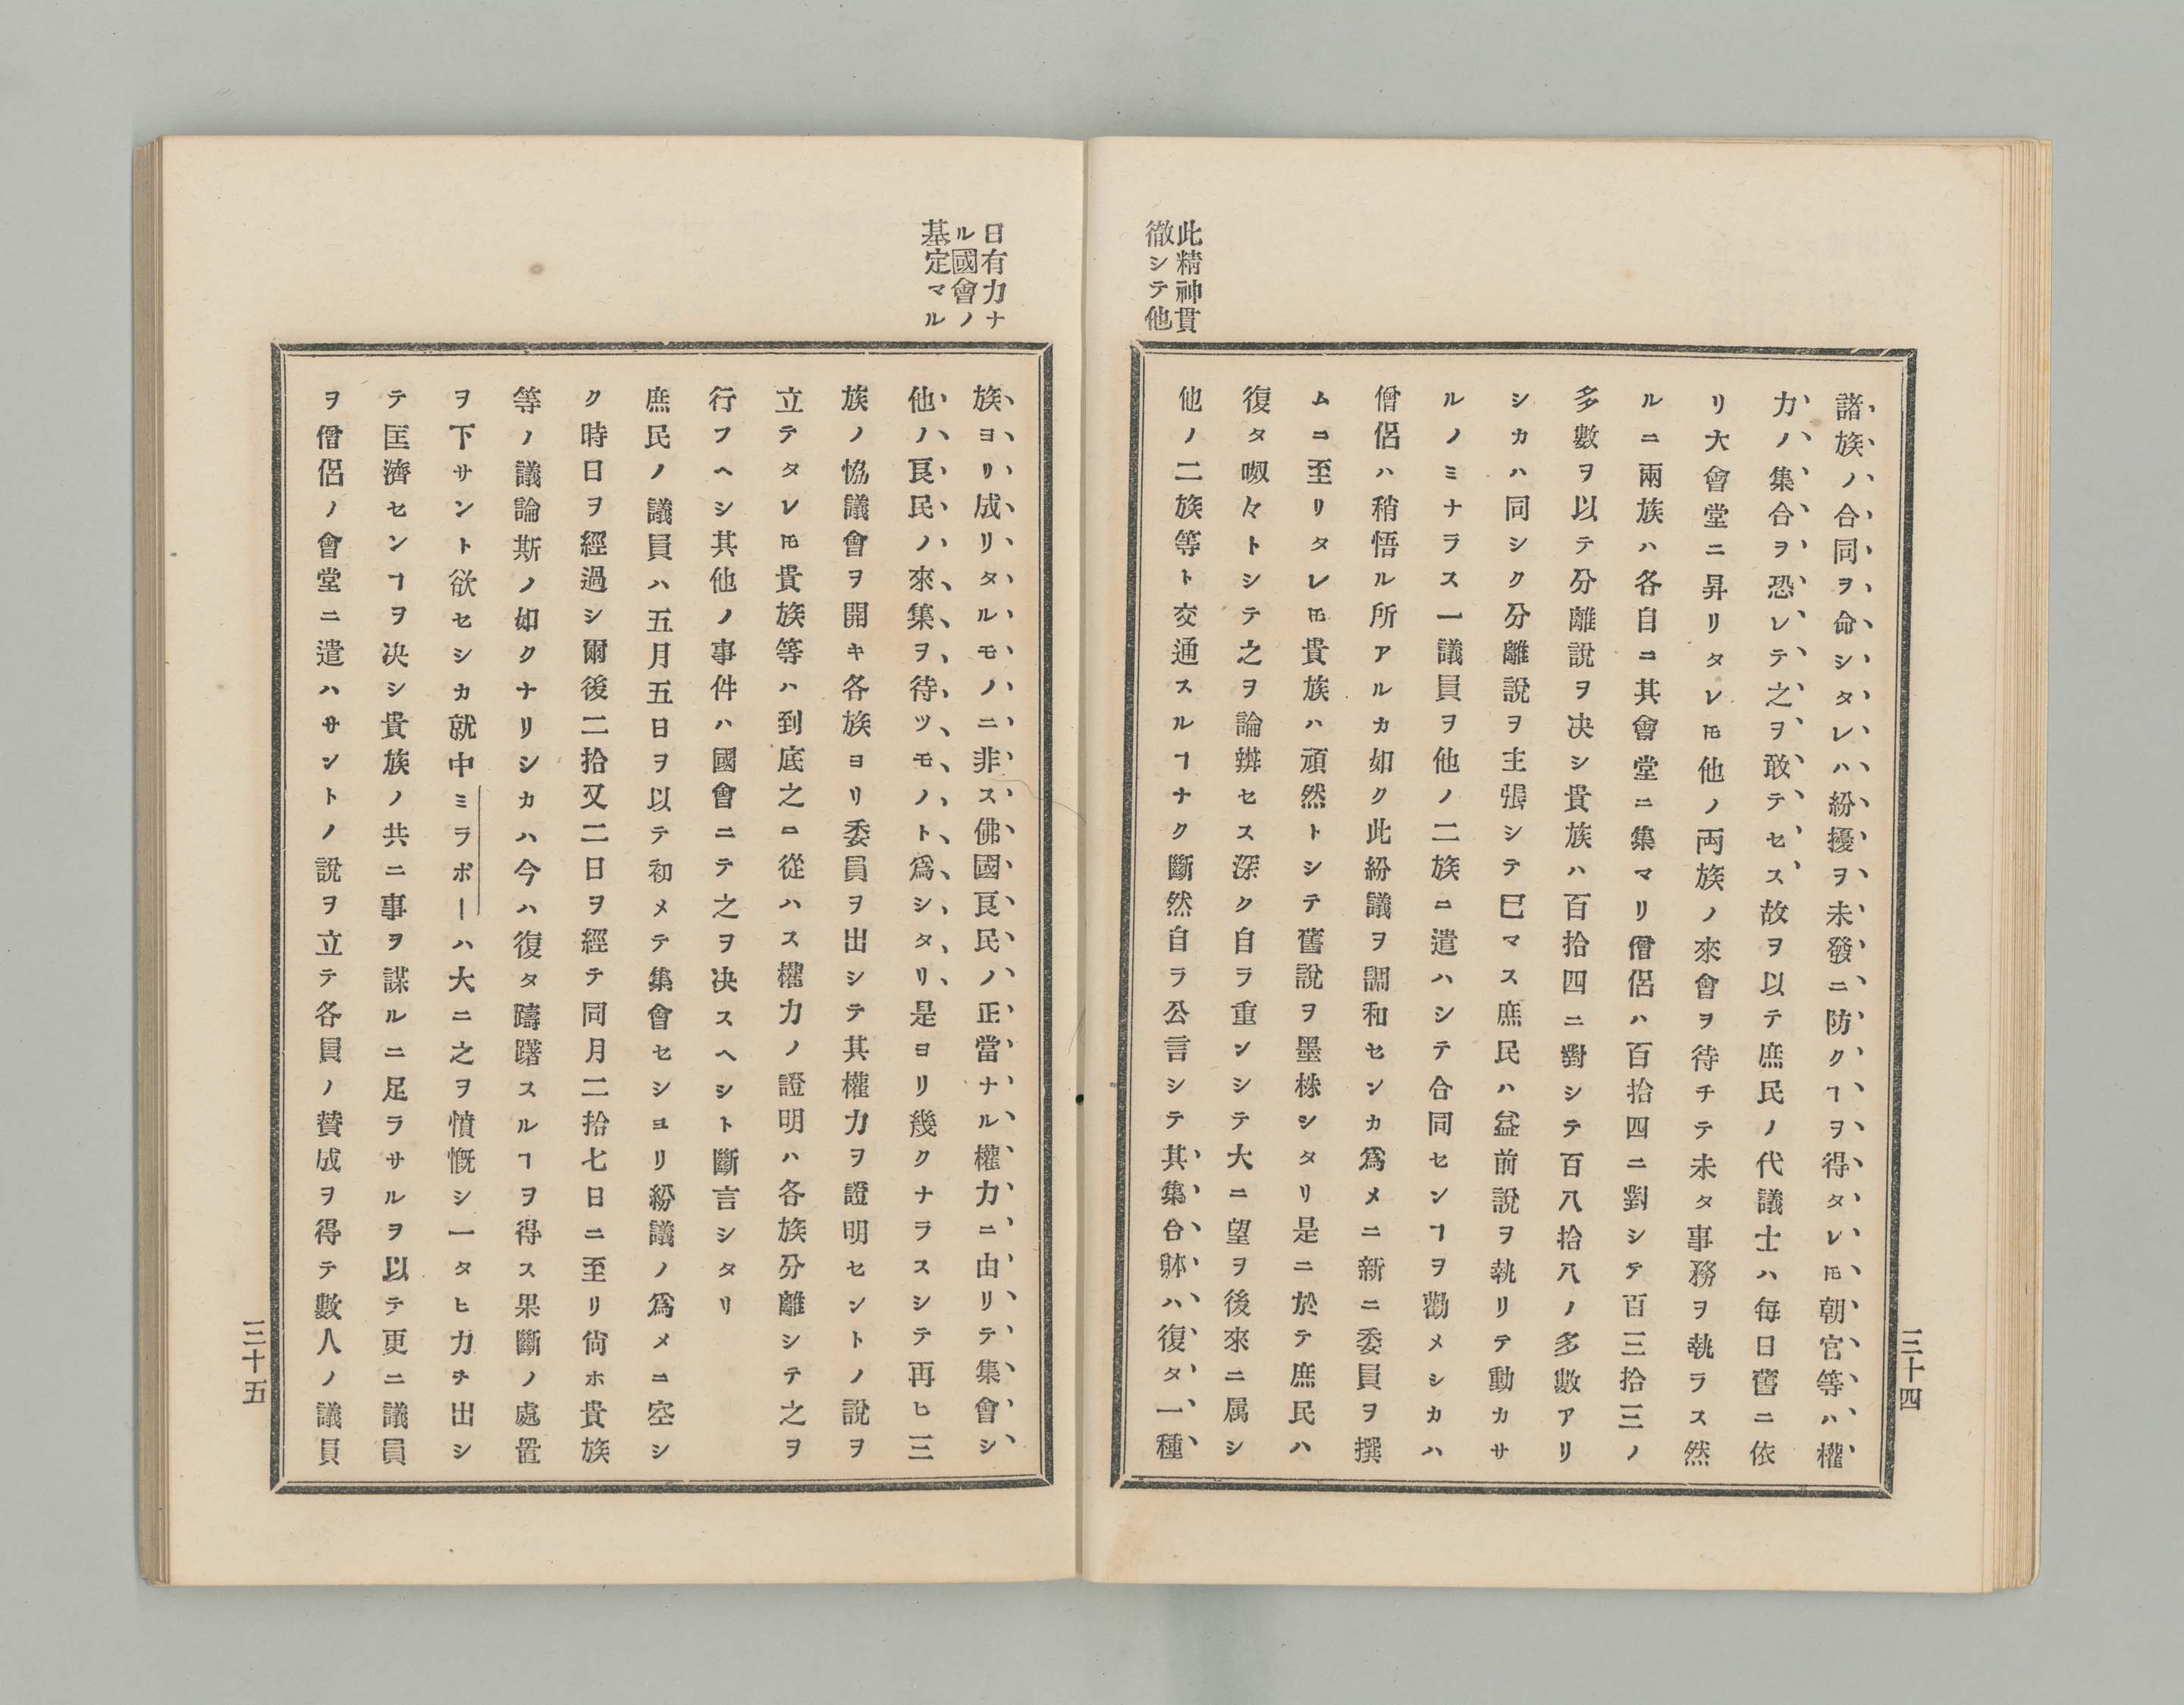 此精神貫
徹シテ他
諸族ノ合同ヲ命シタレハ紛擾ヲ未發ニ防クヿヲ得タレ𪜈朝官等ハ權
力ノ集合ヲ恐レテ之ヲ敢テセス故ヲ以テ庶民ノ代議士ハ毎日舊ニ依
リ大會堂ニ昇リタレ𪜈他ノ両族ノ來會ヲ待チテ未タ事務ヲ執ラス然
ルニ兩族ハ各自ニ其會堂ニ集マリ僧侶ハ百拾四ニ對シテ百三拾三ノ
多數ヲ以テ分離說ヲ决シ貴族ハ百拾四ニ對シテ百八拾八ノ多數アリ
シカハ同シク分離說ヲ主張シテ巳マス庶民ハ益前說ヲ執リテ動カサ
ルノミナラス一議員ヲ他ノ二族ニ遣ハシテ合同センヿヲ勸メシカハ
僧侶ハ稍悟ル所アルカ如ク此紛議ヲ調和センカ爲メニ新ニ委員ヲ撰
ムニ至リタレ𪜈貴族ハ頑然トシテ舊說ヲ墨株シタリ是ニ於テ庶民ハ
復タ呶々トシテ之ヲ論辨セス深ク自ラ重ンシテ大ニ望ヲ後來ニ属シ
他ノ二族等ト交通スルヿナク斷然自ラ公言シテ其集合躰ハ復タ一種
三十四
日有力ナ
ル國會ノ
基定マル
族ヨリ成リタルモノニ非ス佛國良民ノ正當ナル權力ニ由リテ集會シ
他ノ良民ノ來集ヲ待ツモノト爲シタリ是ヨリ幾クナラスシテ再ヒ三
族ノ恊議會ヲ開キ各族ヨリ委員ヲ出シテ其權力ヲ證明セントノ說ヲ
立テタレ𪜈貴族等ハ到底之ニ從ハス權力ノ證明ハ各族分離シテ之ヲ
行フヘシ其他ノ事件ハ國會ニテ之ヲ决スヘシト斷言シタリ
庶民ノ議員ハ五月五日ヲ以テ初メテ集會セシヨリ紛議ノ爲メニ空シ
ク時日ヲ經過シ爾後二拾又二日ヲ經テ同月二拾七日ニ至リ尙ホ貴族
等ノ議論斯ノ如クナリシカハ今ハ復タ躊躇スルヿヲ得ス果斷ノ處置
ヲ下サント欲セシカ就中ミラボーハ大ニ之ヲ憤慨シ一タヒ力ヲ出シ
テ匡濟センヿヲ决シ貴族ノ共ニ事ヲ謀ルニ足ラサルヲ以テ更ニ議員
ヲ僧侶ノ會堂ニ遣ハサントノ說ヲ立テ各員ノ賛成ヲ得テ數人ノ議員
三十五